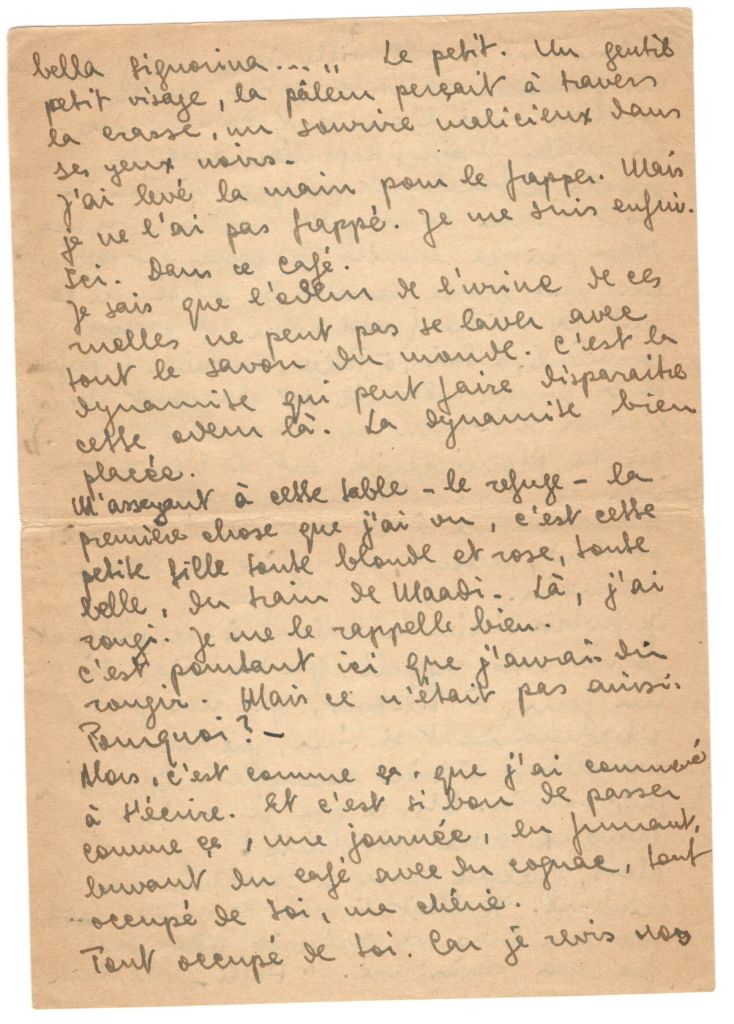 bella signorina...„ Le petit. Un gentil
petit visage, la pâleur perçait à travers
la crasse, un sourire malicieux dans
ses yeux noirs.
J'ai levé la main pour le frapper. Mais
je ne l'ai pas frappé. Je me suis enfui.
Ici. Dans ce café.
Je sais que l'odeur de l'urine de ces
ruelles ne peut pas se laver avec
tout le savon du monde. C'est la
dynamite qui peut faire disparaitre
cette odeur là. La dynamite bien
placée.
M'asseyant à cette table - le refuge - la
première chose que j'ai vu, c'est cette
petite fille toute blonde et rose, toute
belle, du train de Maadi. Là, j'ai
rougi. Je me le rappelle bien.
C'est pourtant ici que j'aurai dû
rougir. Mais ce n'était pas ainsi.
Pourquoi? -
Alors, c'est comme ça, que j'ai commencé
à t'écrire. Et c'est si bon de passer
comme ça, une journée, en fumant,
buvant du café avec du cognac, tout
occupé de toi, ma chérie.
Tout occupé de toi. Car je revis nos